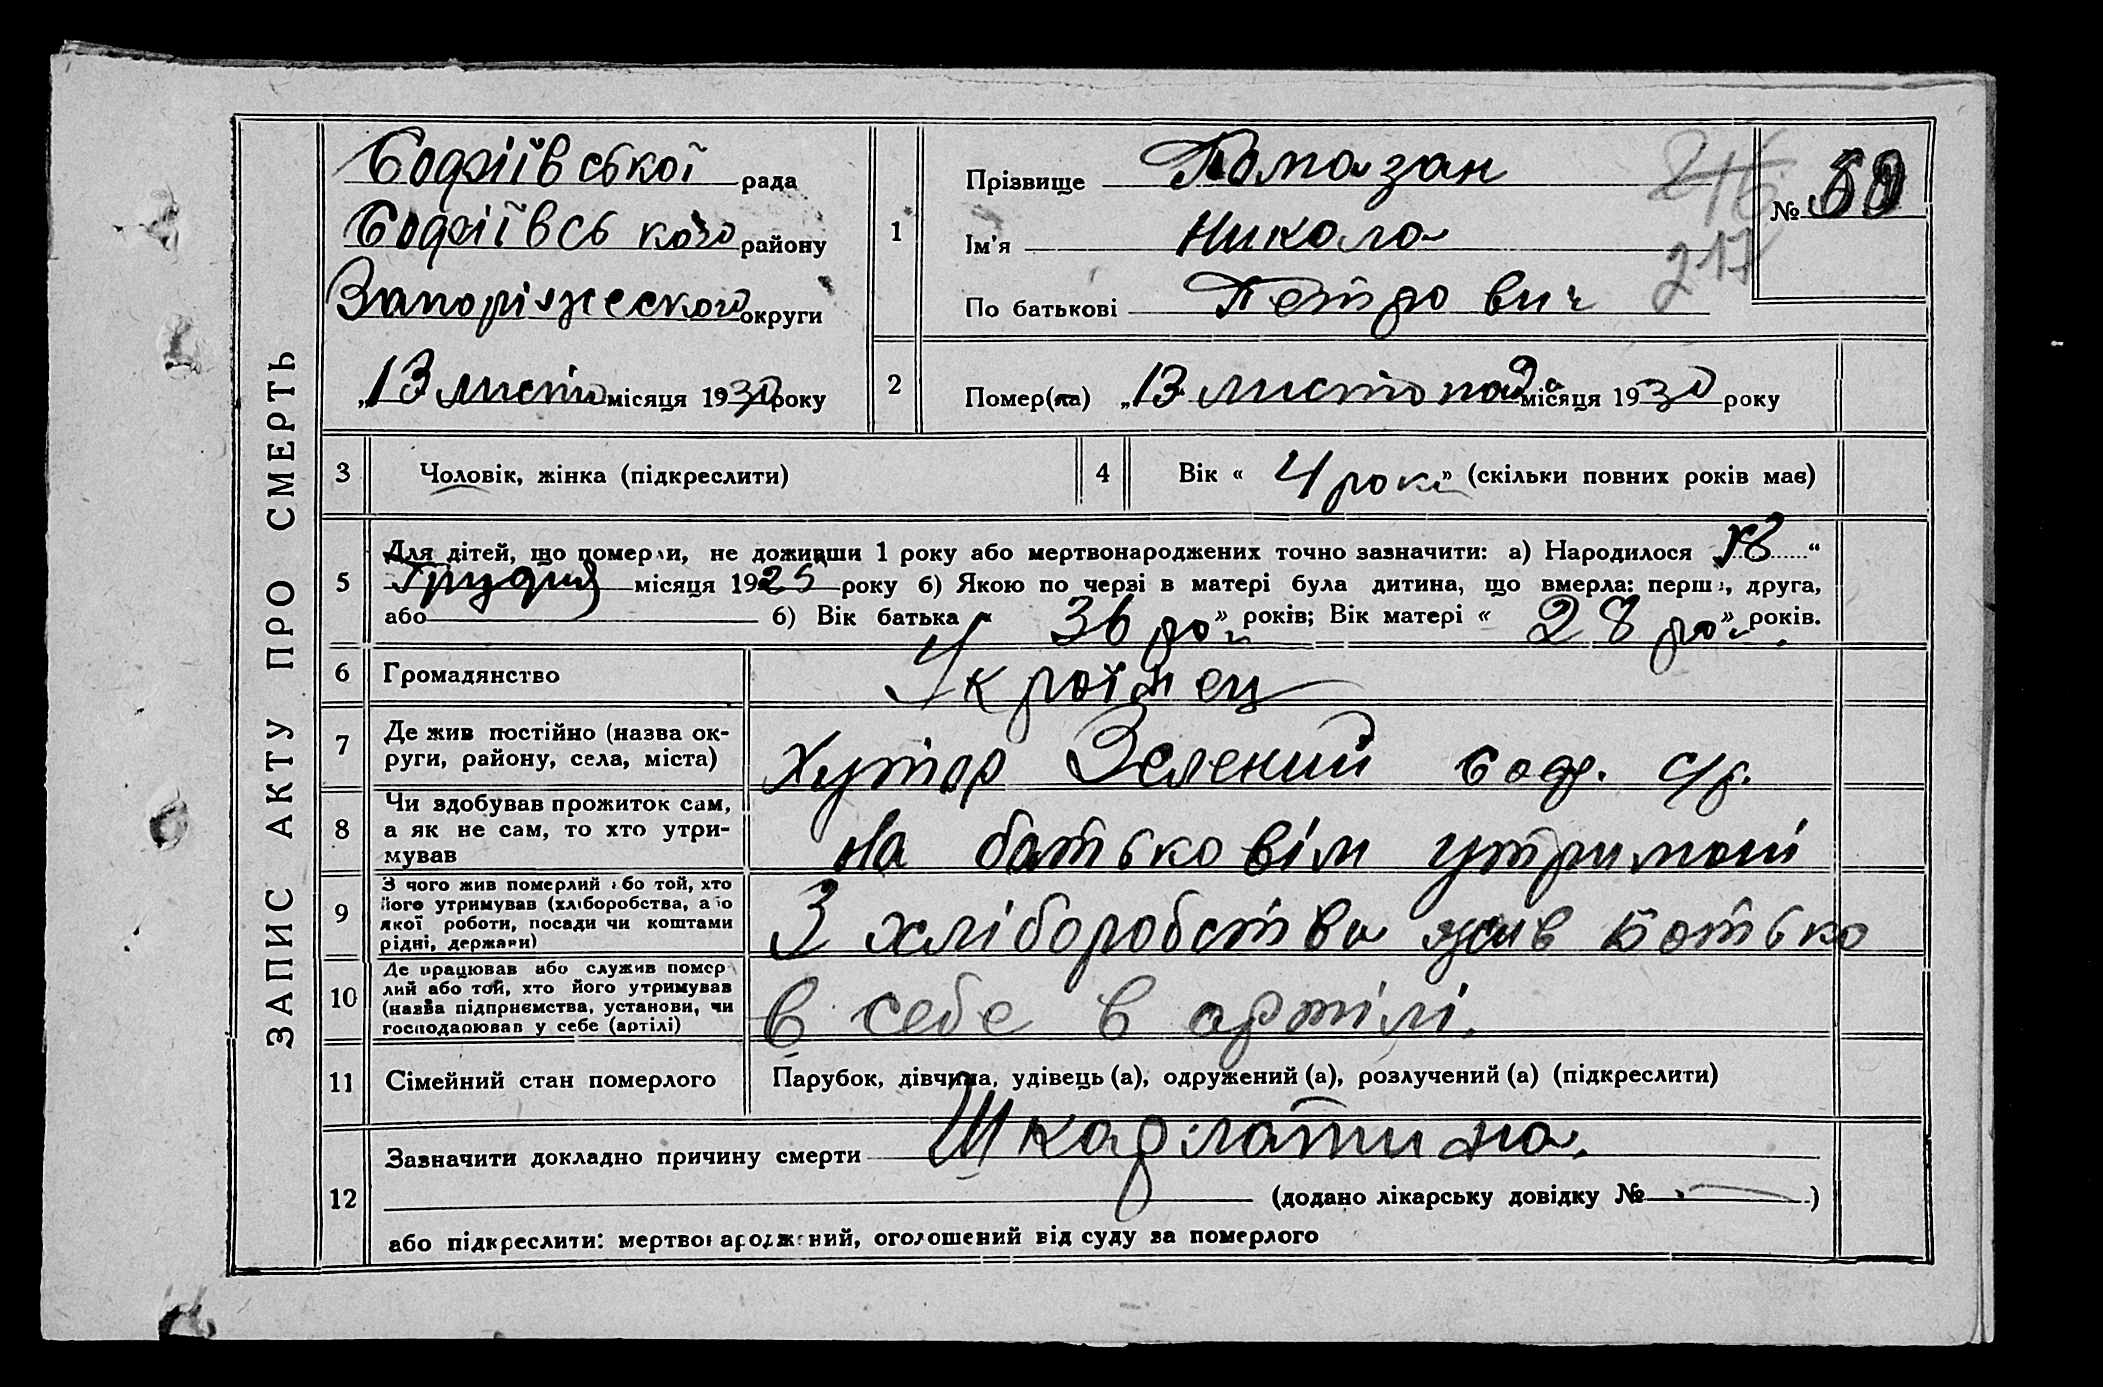 ЗАПИС АКТУ ПРО СМЕРТЬ
Софіївської рада
Софіївського району
Запоріжеского округи
„13 листо місяця 1930 року
1
Прізвище
Ім'я Никола
По батькові Петрович
216
217
№
2
Помер(ла) „13 листопада місяця 1930 року
3
Чоловік, жінка (підкреслити)
4
Вік « 4 роки » (скільки повних років має)
5
Для дітей, що померли, не доживши 1 року або мертвонароджених точно зазначити: а) Народилося 18 “
Грудня місяця 1925 року б) Якою по черзі в матері була дитина, що вмерла: перша, друга,
або б) Вік батька « 36 ро » років; Вік матері « 28 ро » років.
6
Громадянство
Українец
7
Де жив постійно (назва ок-
руги, району, села, міста)
Хутір Зелений Соф. с/р.
8
Чи здобував прожиток сам,
а як не сам, то хто утри-
мував
На батьковім утримані
9
З чого жив померлий або той, хто
його утримував (хліборобства, або
якої роботи, посади чи коштами
рідні, держави)
З хліборобства жив батько
10
Де працював або служив помер
лий або той, хто його утримував
(назва підприємства, установи, чи
господарював у себе (артілі)
в себе в артілі.
11
Сімейний стан померлого
Парубок, дівчина, удівець (а), одружений (а), розлучений (а) (підкреслити)
12
Зазначити докладно причину смерти Шкарлатина.
(додано лікарську довідку № )
або підкреслити: мертвонароджений, оголошений від суду за померлого